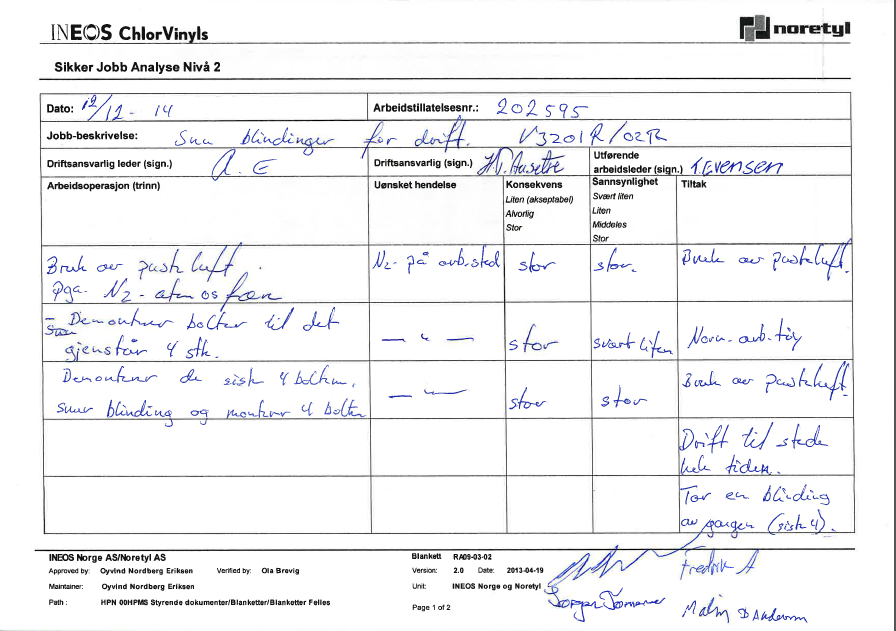 INEOS ChlorVinyls
noretyl
Sikker Jobb Analyse Nivå 2
Dato: 12/12-14
Arbeidstillatelsesnr.: 202595
Jobb-beskrivelse: Snu blindinger for drift. V3201R/02R
Driftsansvarlig leder (sign.) A. E
Driftsansvarlig (sign.)
Utførende
arbeidsleder (sign.) T. Evensen
Arbeidsoperasjon (trinn)
Uønsket hendelse
Konsekvens
Liten (akseptabel)
Alvorlig
Stor
Sannsynlighet
Svært liten
Liten
Middeles
Stor
Tiltak
Bruk av pusteluft.
Pga. N2-atmosfæren
N2- på arb.sted
stor
stor.
Bruk av pusteluft.
- Demonterer bolter til det
gjenstår 4 stk.
— " —
stor
svært liten
Norm. arb. tøy
Demonterer de siste 4 boltene,
snur blinding og monterer 4 bolter
— " —
stor
stor
Bruk av pusteluft
Drift til stede
hele tiden.
Tar en blinding
av gangen (siste 4).
INEOS Norge AS/Noretyl AS
Approved by: Oyvind Nordberg Eriksen Verified by: Ola Brevig
Maintainer: Oyvind Nordberg Eriksen
Path : HPN 00HPMS Styrende dokumenter/Blanketter/Blanketter Felles
Blankett RA09-03-02
Version: 2.0 Date: 2013-04-19
Unit: INEOS Norge og Noretyl
Page 1 of 2
Fredrik A
Malin D Anderson